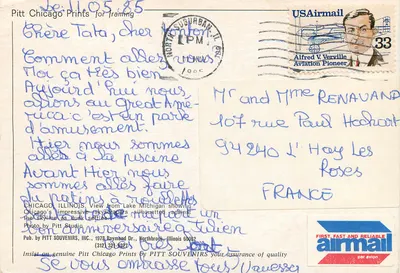 Pitt Chicago Prints for Framing
Le 11.05.85
Chère Tata, cher tonton
Comment allez vous
Moi ça très bien
Aujourd'hui nous
allons au Great Amé-
rica c'est un park
d'amusement.
Hier nous sommes
allés à la piscine
Avant Hier nous
sommes allés faire
du patins à roulettes
CHICAGO, ILLINOIS, View from Lake Michigan showing
Chicago's impressive
Photo by Pitt Studio
un
bon anniversaire à Julien
Pub. by PITT SOUVENIRS, INC.
Northbrook, Illinois 60062
Insist on genuine Pitt Chicago Prints by PITT SOUVENIRS your assurance of quality
Je vous embrasse tous
NORTH SUBURBAN, IL
PM
USAirmail
33
Alfred V. Verville
Aviation Pioneer
Mr and Mme RENAUAND
107 rue Paul Hochart
94240 L'Hay Les
Roses
FRANCE
FIRST, FAST AND RELIABLE
airmail
par avion